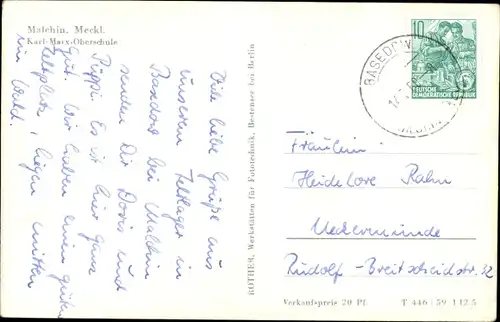 Malchin. Meckl.
Karl-Marx-Oberschule
Viele liebe Grüße aus
unserem Zeltlager in
Basedow bei Malchin
senden Dir Doris und
Püppi. Es ist hier ganz
gut. Wir haben einen guten
Zeltplatz, liegen mitten
im Wald.
ROTHER, Werkstätten für Fototechnik, Bestensee bei Berlin
10
DEUTSCHE
DEMOKRATISCHE REPUBLIK
BASEDOW
Fräulein
Heidelore Rahn
Ueckermünde
Rudolf-Breitscheidstr. 32
Verkaufspreis 20 Pf. T 446/59 1 12 5